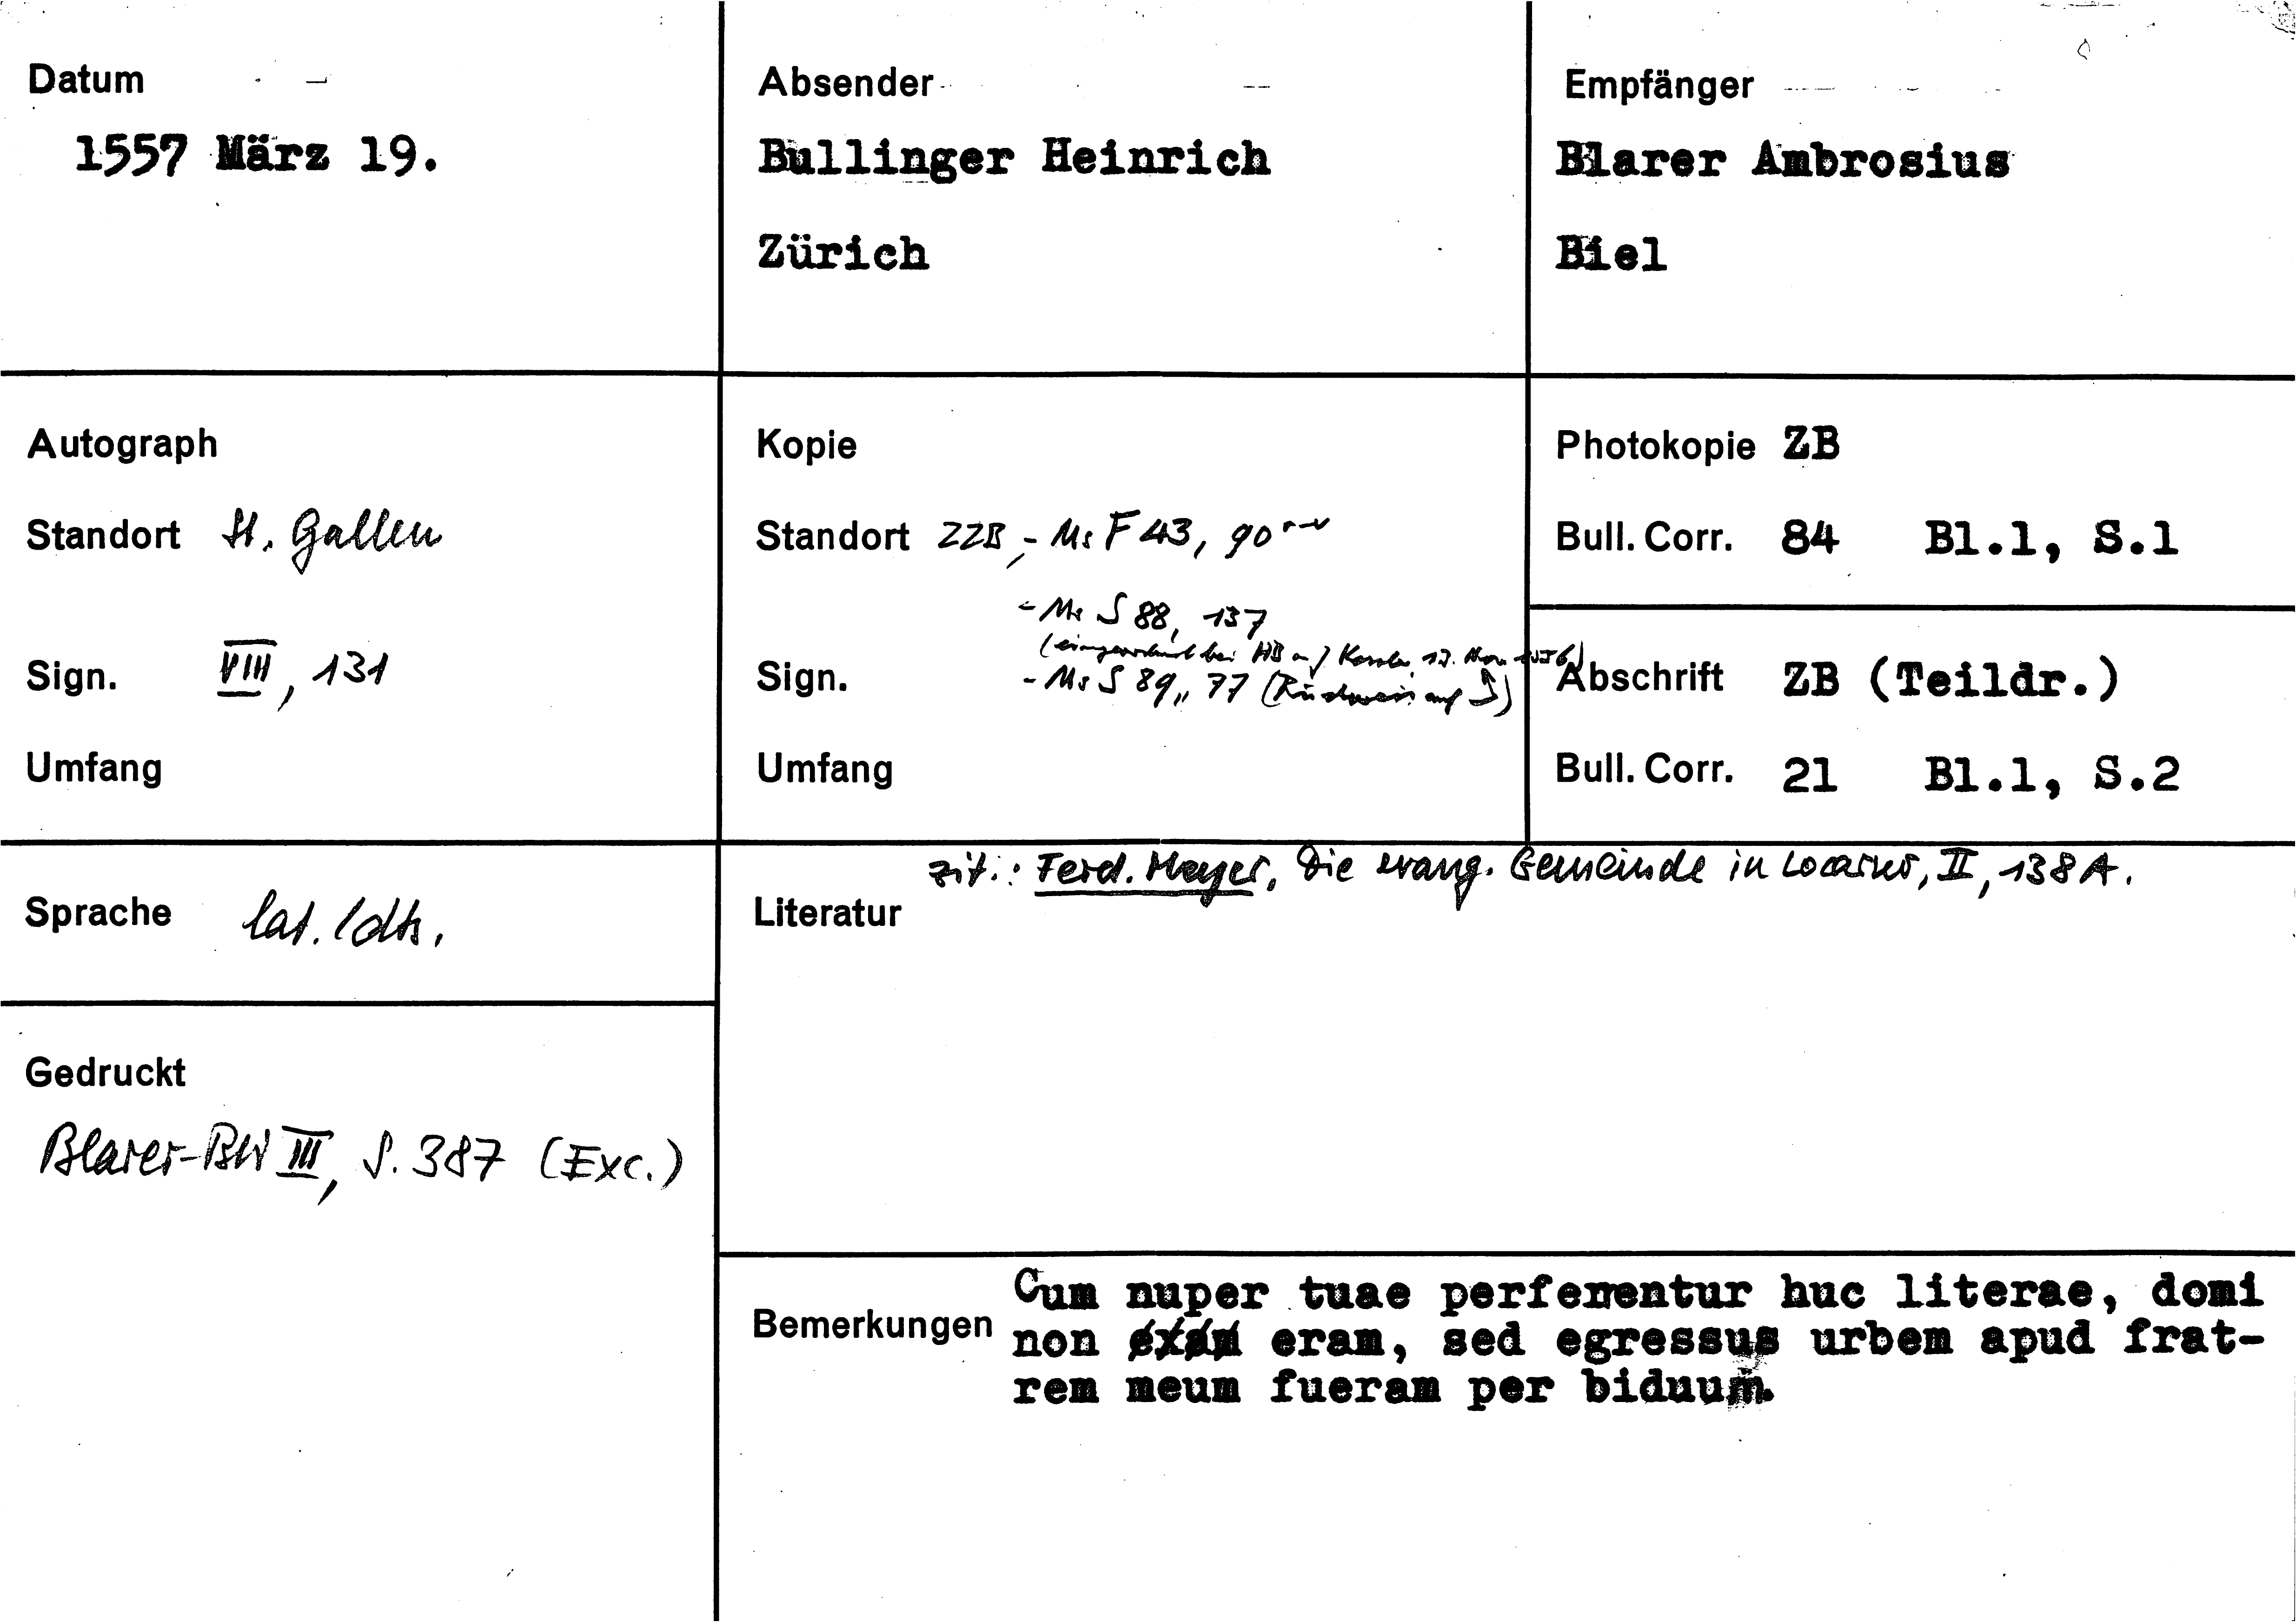 Datum
1557 März 19.
Absender
Bullinger Heinrich
Zürich
Empfänger
Blarer Ambrosius
Biel
Autograph
Standort St. Gallen
Sign. VIII, 131
Umfang
Kopie
Standort ZZB, - Ms F 43, 90 r-v
- Ms S 88, 137
( bei HB 17. 1556)
Sign. - Ms S 89, 77 (Rückweis auf ↑)
Umfang
Photokopie ZB
Bull. Corr. 84 Bl.1, S.1
Abschrift ZB (Teildr.)
Bull. Corr. 21 Bl.1, S.2
Sprache lat./dt.
Gedruckt
Blarer-BW III, S. 387 (Exc.)
zit.: Ferd. Meyer, Die evang. Gemeinde in Locarno, II, 138 A.
Literatur
Bemerkungen
Cum nuper tuae perferrentur huc literae, domi
non eram, sed egressus urbem apud frat-
rem meum fueram per biduum.